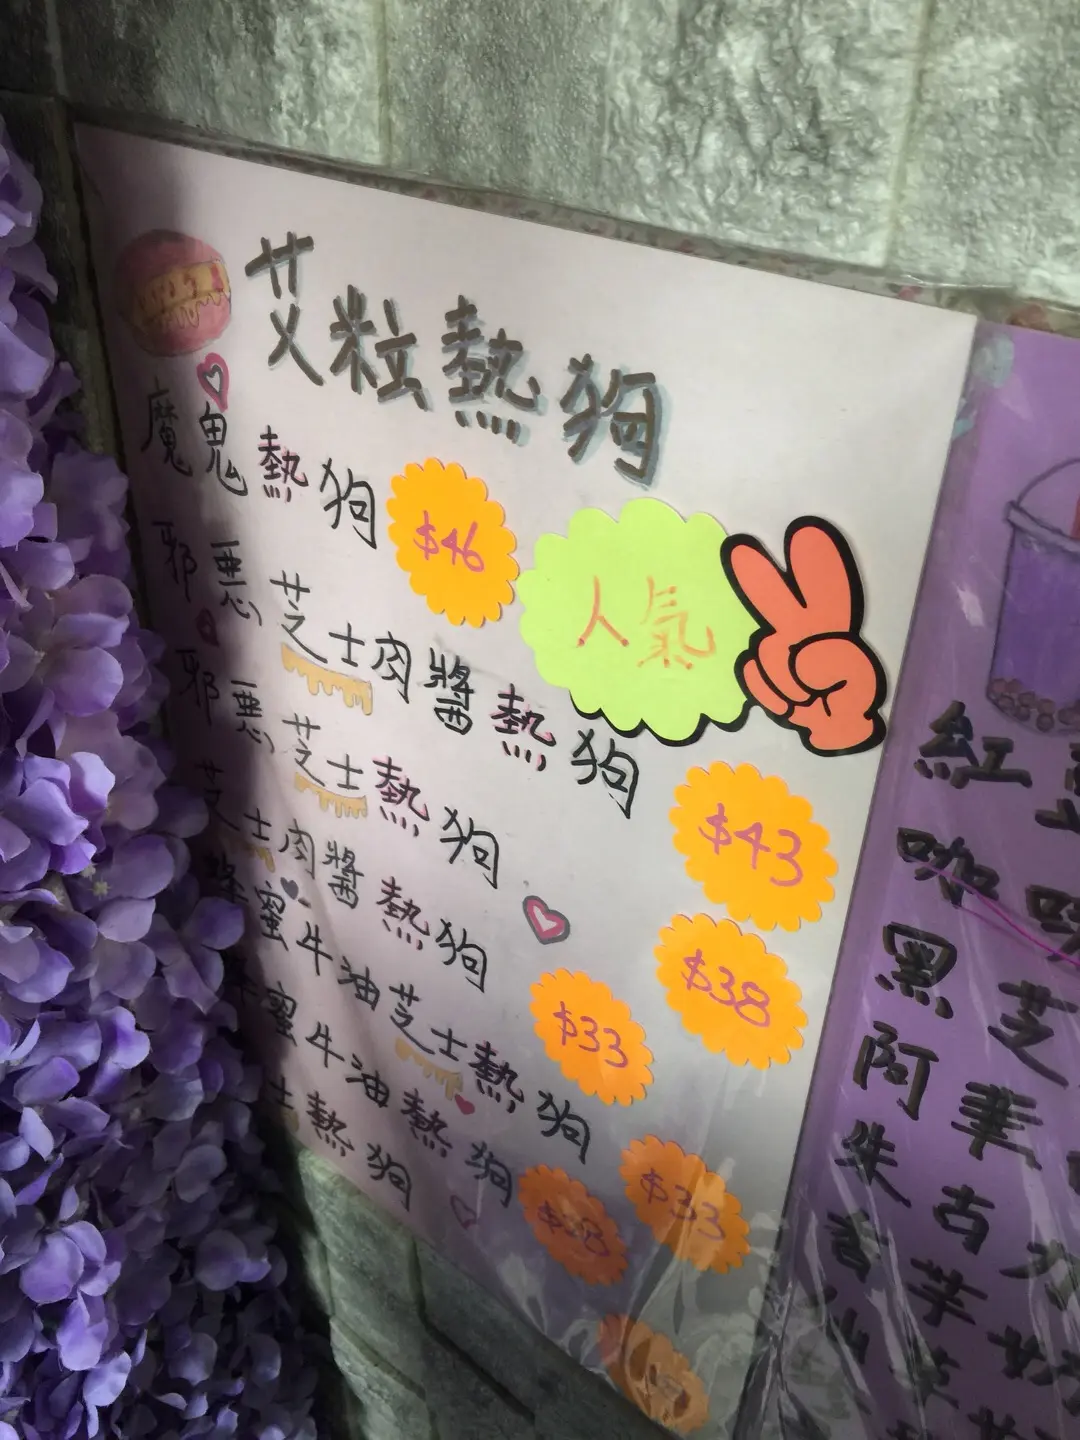 艾粒熱狗
魔鬼熱狗 $46
人氣
邪惡芝士肉醬熱狗 $43
邪惡芝士熱狗 $38
芝士肉醬熱狗 $33
蜂蜜牛油芝士熱狗 $33
蜂蜜牛油熱狗 $28
士熱狗
紅
咖啡
黑芝
阿華
朱古
香芋